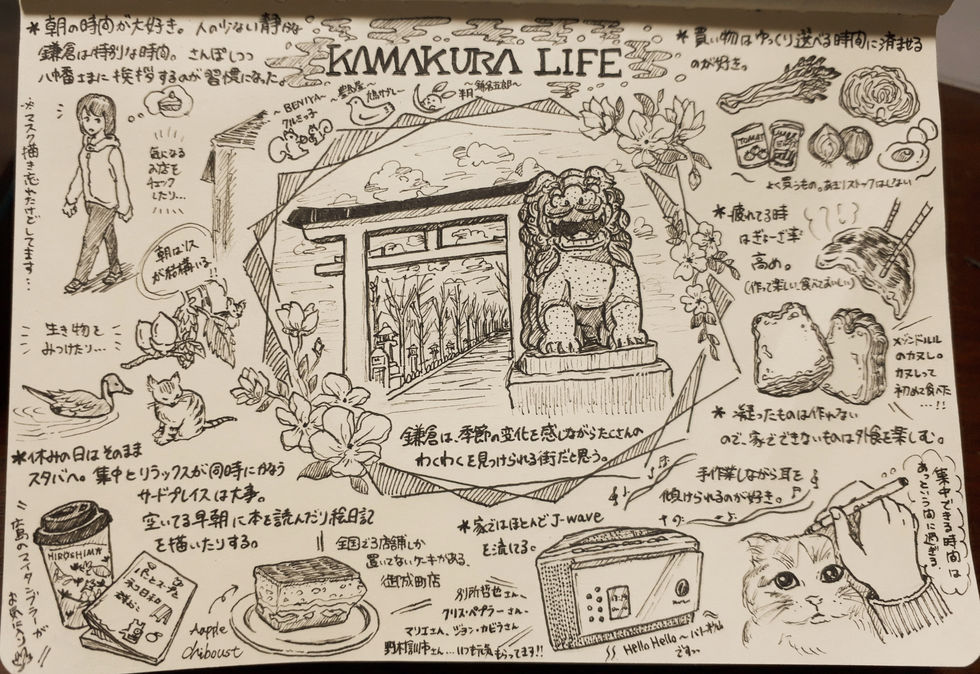 KAMAKURA LIFE
* 朝の時間が大好き。人の少ない静かな
鎌倉は特別な時間。さんぽしつつ
八幡さまに挨拶するのが習慣になった。
※マスク描き忘れたけどしてます…
気になる
お店を
チェック
したり…
~BENIYA~
クルミッ子
~豊島屋~
鳩サブレー
~鎌倉五郎~
半月
朝はリス
が結構いる!!
生き物を
みつけたり…
鎌倉は、季節の変化を感じながらたくさんの
わくわくを見つけられる街だと思う。
* 買い物はゆっくり選べる時間に済ませる
のが好き。
TOMATO
よく買うもの。あまりストックはしない
* 疲れてる時
はぎょーざ率
高め。
(作って楽しい、食べておいしい)
メゾンドルル
のカヌレ。
カヌレって
初めて食べた
…!!
* 凝ったものは作れない
ので、家でできないものは外食を楽しむ。
*休みの日はそのまま
スタバへ。集中とリラックスが同時にかなう
サードプレイスは大事。
空いてる早朝に本を読んだり絵日記
を描いたりする。
HIROSHIMA
広島のスイタンブラーが
お気に入り
パンとスープと
ネコ日和
群ようこ
全国で3店舗しか
置いてないケーキがある、
御成町店
Aapple
Chiboust
*家ではほとんどJ-wave
を流してる。
別所哲也さん、
クリス・ペプラーさん…
マリエさん、ジョン・カビラさん
野村訓市さん…いつも元気もらってます!!
Hello Hello~
ですっ
手作業しながら耳を
傾けられるのが好き。
集中できる時間は
あっという間に過ぎる